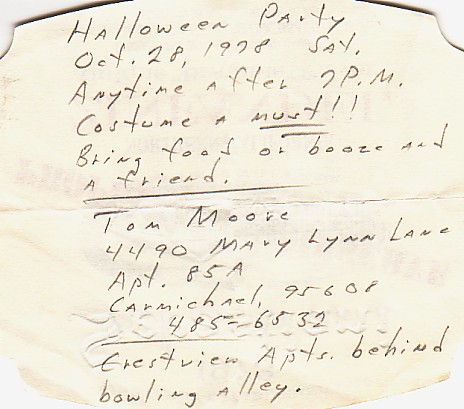 Halloween Party
Oct. 28, 1978 Sat.
Anytime after 7P.M.
Costume a must!!
Bring food or booze and
a friend.
Tom Moore
4490 Mary Lynn Lane
Apt. 85A
Carmichael, 95608
485-6532
Crestview Apts. behind
bowling alley.